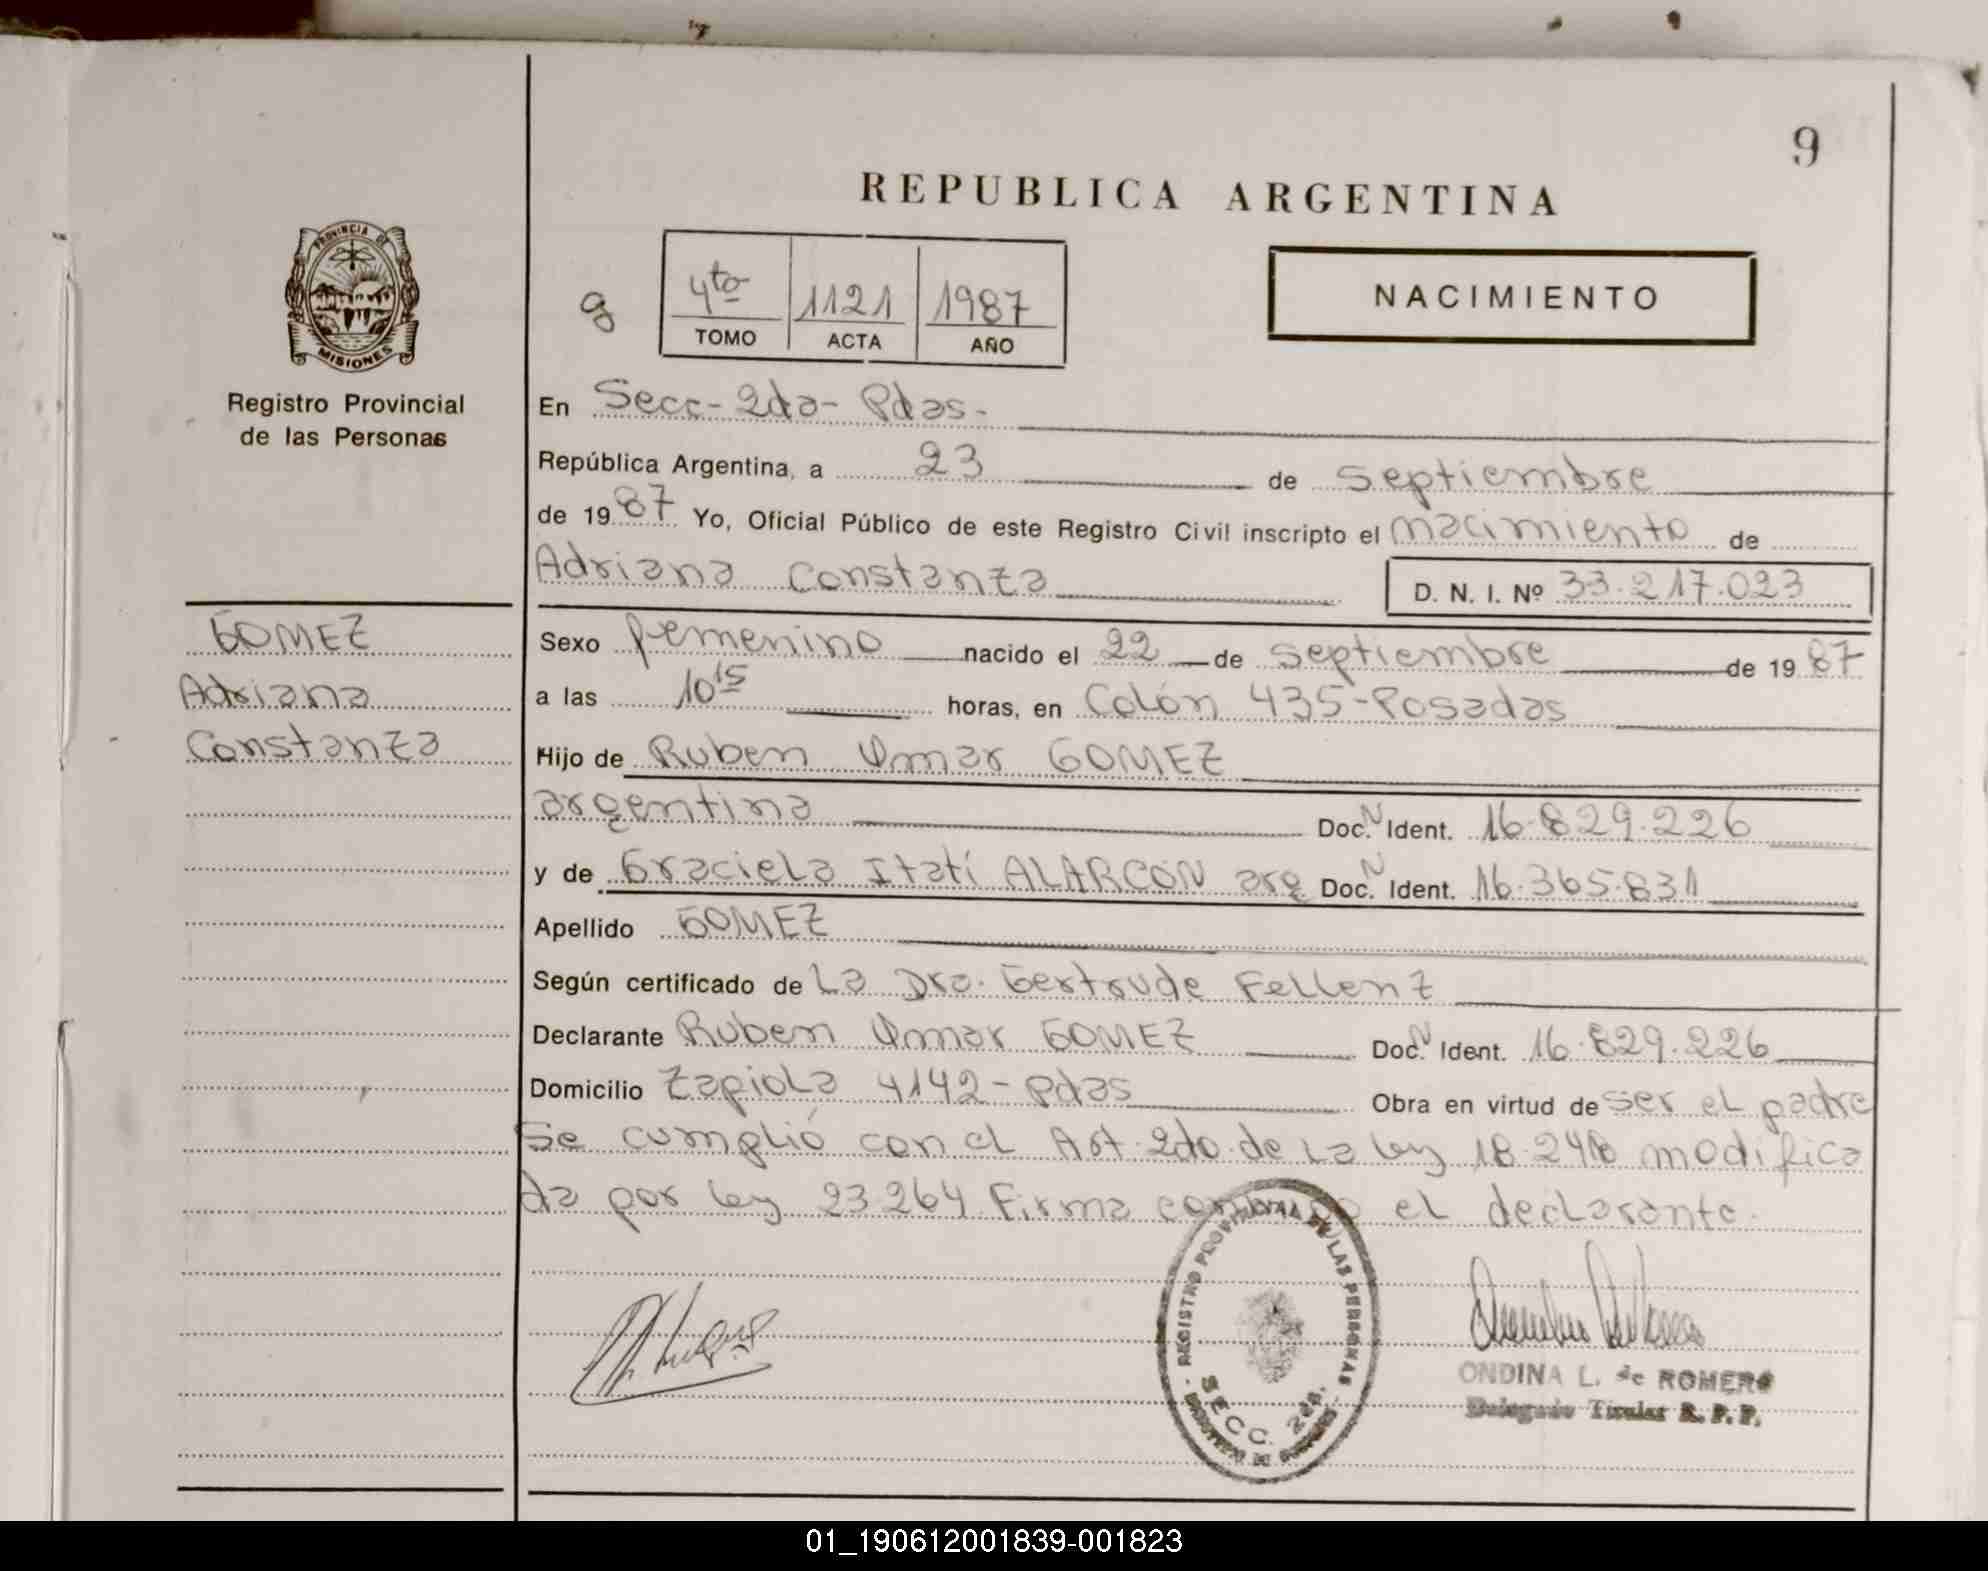 9
REPUBLICA ARGENTINA
PROVINCIA DE
MISIONES
Registro Provincial
de las Personas
8
4to 1121 1987
TOMO ACTA AÑO
NACIMIENTO
En Secc- 2da- Pdas.
República Argentina, a 23 de septiembre
de 1987 Yo, Oficial Público de este Registro Civil inscripto el nacimiento de
Adriana Constanza D. N. I. Nº 33.217.023
GOMEZ
Adriana
Constanza
Sexo femenino nacido el 22 de septiembre de 1987
a las 10 15 horas, en Colón 435-Posadas
Hijo de Ruben Omar GOMEZ
argentina Doc. N Ident. 16.829.226
y de Graciela Itatí ALARCON arg Doc. N Ident. 16.365.831
Apellido GOMEZ
Según certificado de La Dra. Gertrude Fellenz
Declarante Ruben Omar GOMEZ Doc. N Ident. 16.829.226
Domicilio Zapiola 4142-Pdas Obra en virtud de ser el padre
Se cumplió con el Art. 2do. de La Ley 18.248 modifica
da por Ley 23.264 Firma conmigo el declarante.
REGISTRO PROVINCIAL DE LAS PERSONAS
SECC. 2da.
ONDINA L. de ROMERO
Delegado Titular R. P. P.
01_190612001839-001823